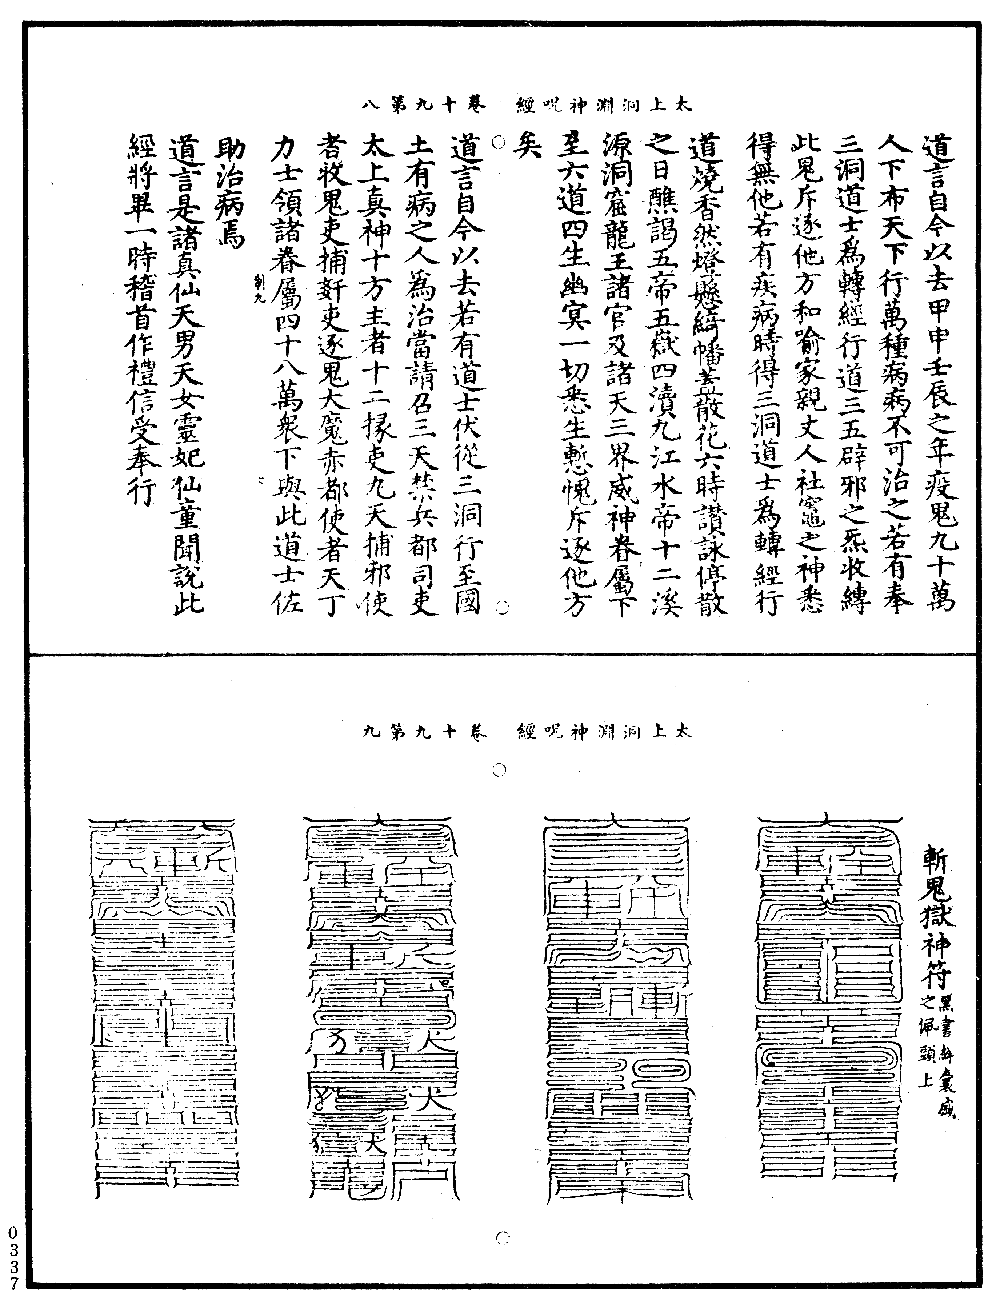 太上洞淵神呪經　卷十九第八
道言自今以去甲申壬辰之年疫鬼九十萬
人下布天下行萬種病病不可治之若有奉
三洞道士爲轉經行道三五辟邪之炁收縛
此鬼斥逐他方和喻家親丈人社竈之神悉
得無他若有疾病時得三洞道士爲轉經行
道燒香然燈懸綺幡蓋散花六時讚詠停散
之日醮謁五帝五嶽四瀆九江水帝十二溪
源洞窟龍王諸官及諸天三界威神眷屬下
至六道四生幽冥一切悉生慙愧斥逐他方
矣
道言自今以去若有道士伏從三洞行至國
土有病之人爲治當請召三天禁兵都司吏
太上真神十方主者十二掾吏九天捕邪使
者收鬼吏捕姧吏逐鬼大魔赤都使者天丁
力士領諸眷屬四十八萬衆下與此道士佐
制九
助治病焉
道言是諸真仙天男天女靈妃仙童聞說此
經將畢一時稽首作禮信受奉行
太上洞淵神呪經　卷十九第九
斬鬼獄神符
黑書絳囊盛
之佩頭上
0337